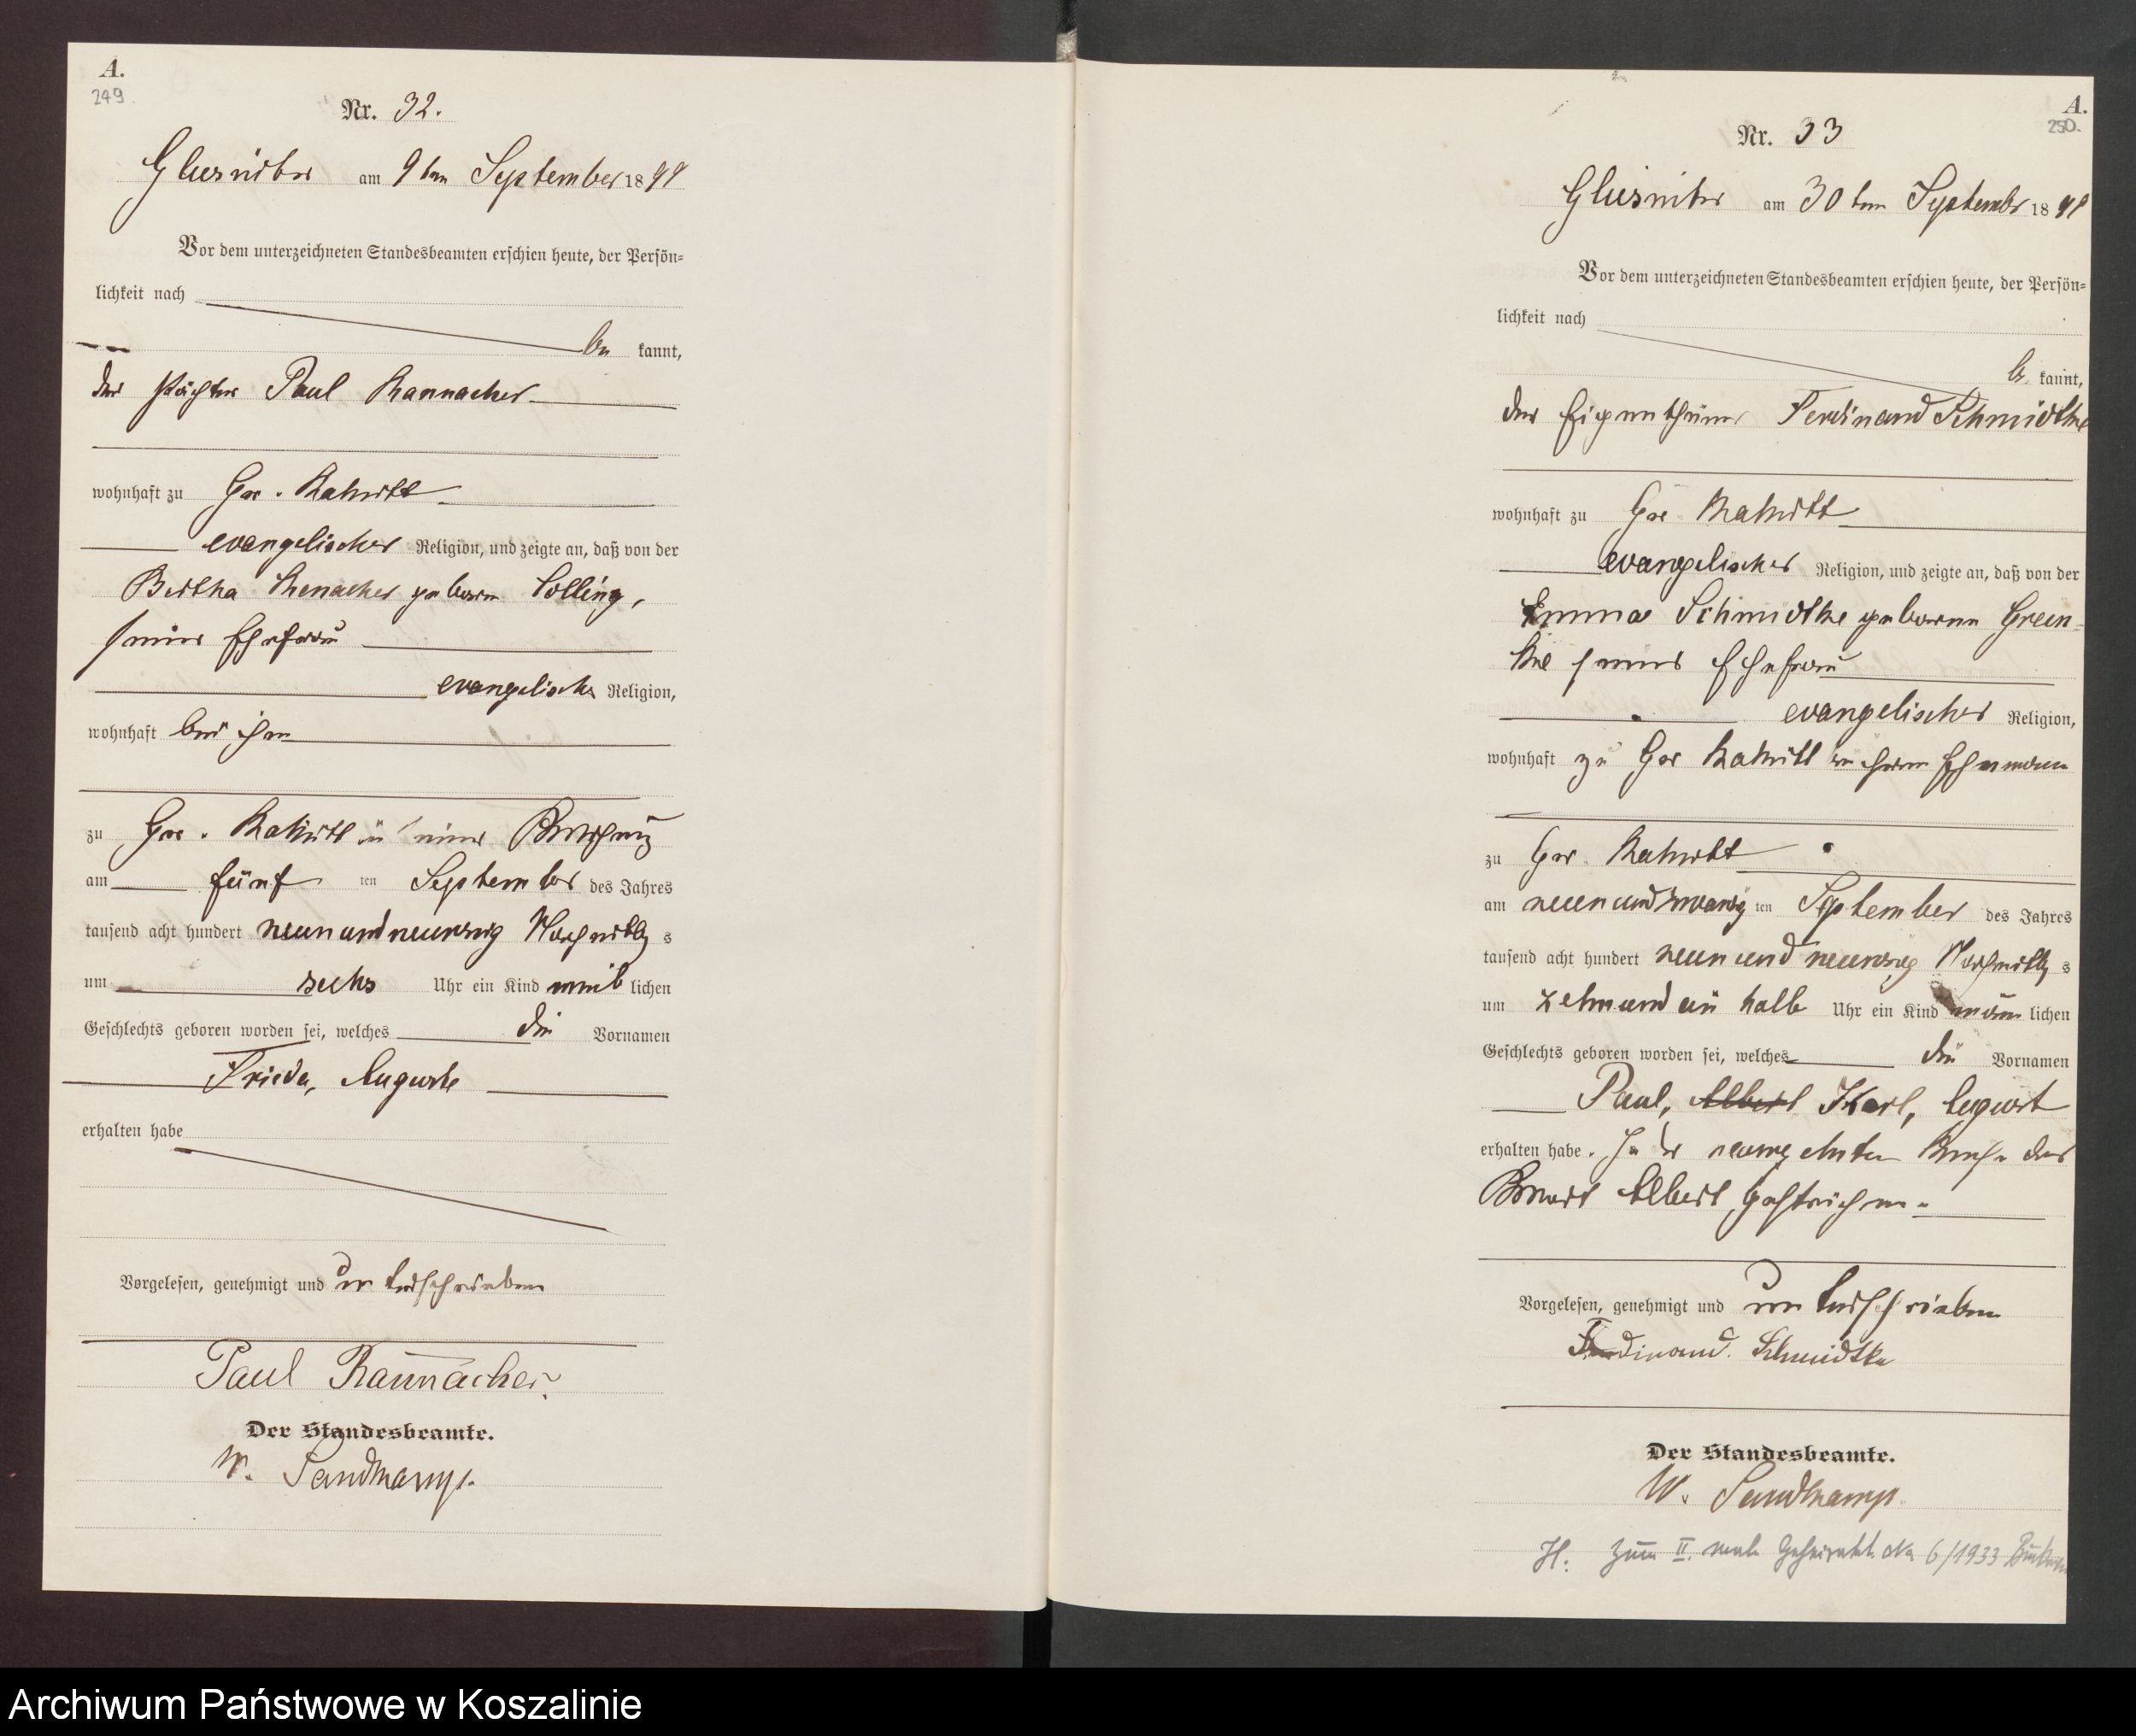 A.
249
Nr. 32.
Glusnitz am 9ten September 1899
Vor dem unterzeichneten Standesbeamten erschien heute, der Persön-
lichkeit nach
be kannt,
der Pächter Paul Rannacher
wohnhaft zu Gr. Rakitt
evangelischer Religion, und zeigte an, daß von der
Bertha geborene Polling,
seiner Ehefrau
evangelischer Religion,
wohnhaft bei ihm
zu Gr. Rakitt in seiner Behausung
am fünf ten September des Jahres
tausend acht hundert neunundneunzig Nachmittag s
um sechs Uhr ein Kind weib lichen
Geschlechts geboren worden sei, welches die Vornamen
Frieda, Auguste
erhalten habe
Vorgelesen, genehmigt und unterschrieben
Paul Rannacher.
Der Standesbeamte.
W. Sandkamp.
A.
250.
Nr. 33
am 30ten September 1899
Vor dem unterzeichneten Standesbeamten erschien heute, der Persön-
lichkeit nach
be kannt,
der Eigenthümer Ferdinand Schmidtke
wohnhaft zu Gr Rakitt
evangelischer Religion, und zeigte an, daß von der
Emma Schmidtke geborene Green-
ke seiner Ehefrau
evangelischer Religion,
wohnhaft zu Gr Rakitt bei ihrem Ehemann
zu Gr. Rakitt
am neunundzwanzig ten September des Jahres
tausend acht hundert neunundneunzig Nachmittag s
um zehnundein halb Uhr ein Kind männ lichen
Geschlechts geboren worden sei, welches die Vornamen
Paul, Albert Karl, August
erhalten habe. In der neunzehnten Reihe das
Wort Albert gestrichen.
Vorgelesen, genehmigt und unterschrieben
Ferdinand Schmidtke
Der Standesbeamte.
W. Sandkamp.
H: zum II. male geheiratet No 6/1933
Archiwum Państwowe w Koszalinie